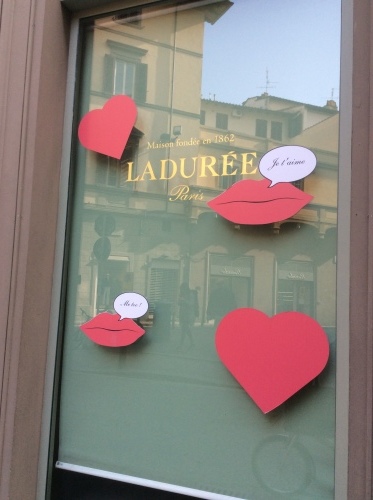 Maison fondée en 1862
LADURÉE
Paris
Je t'aime